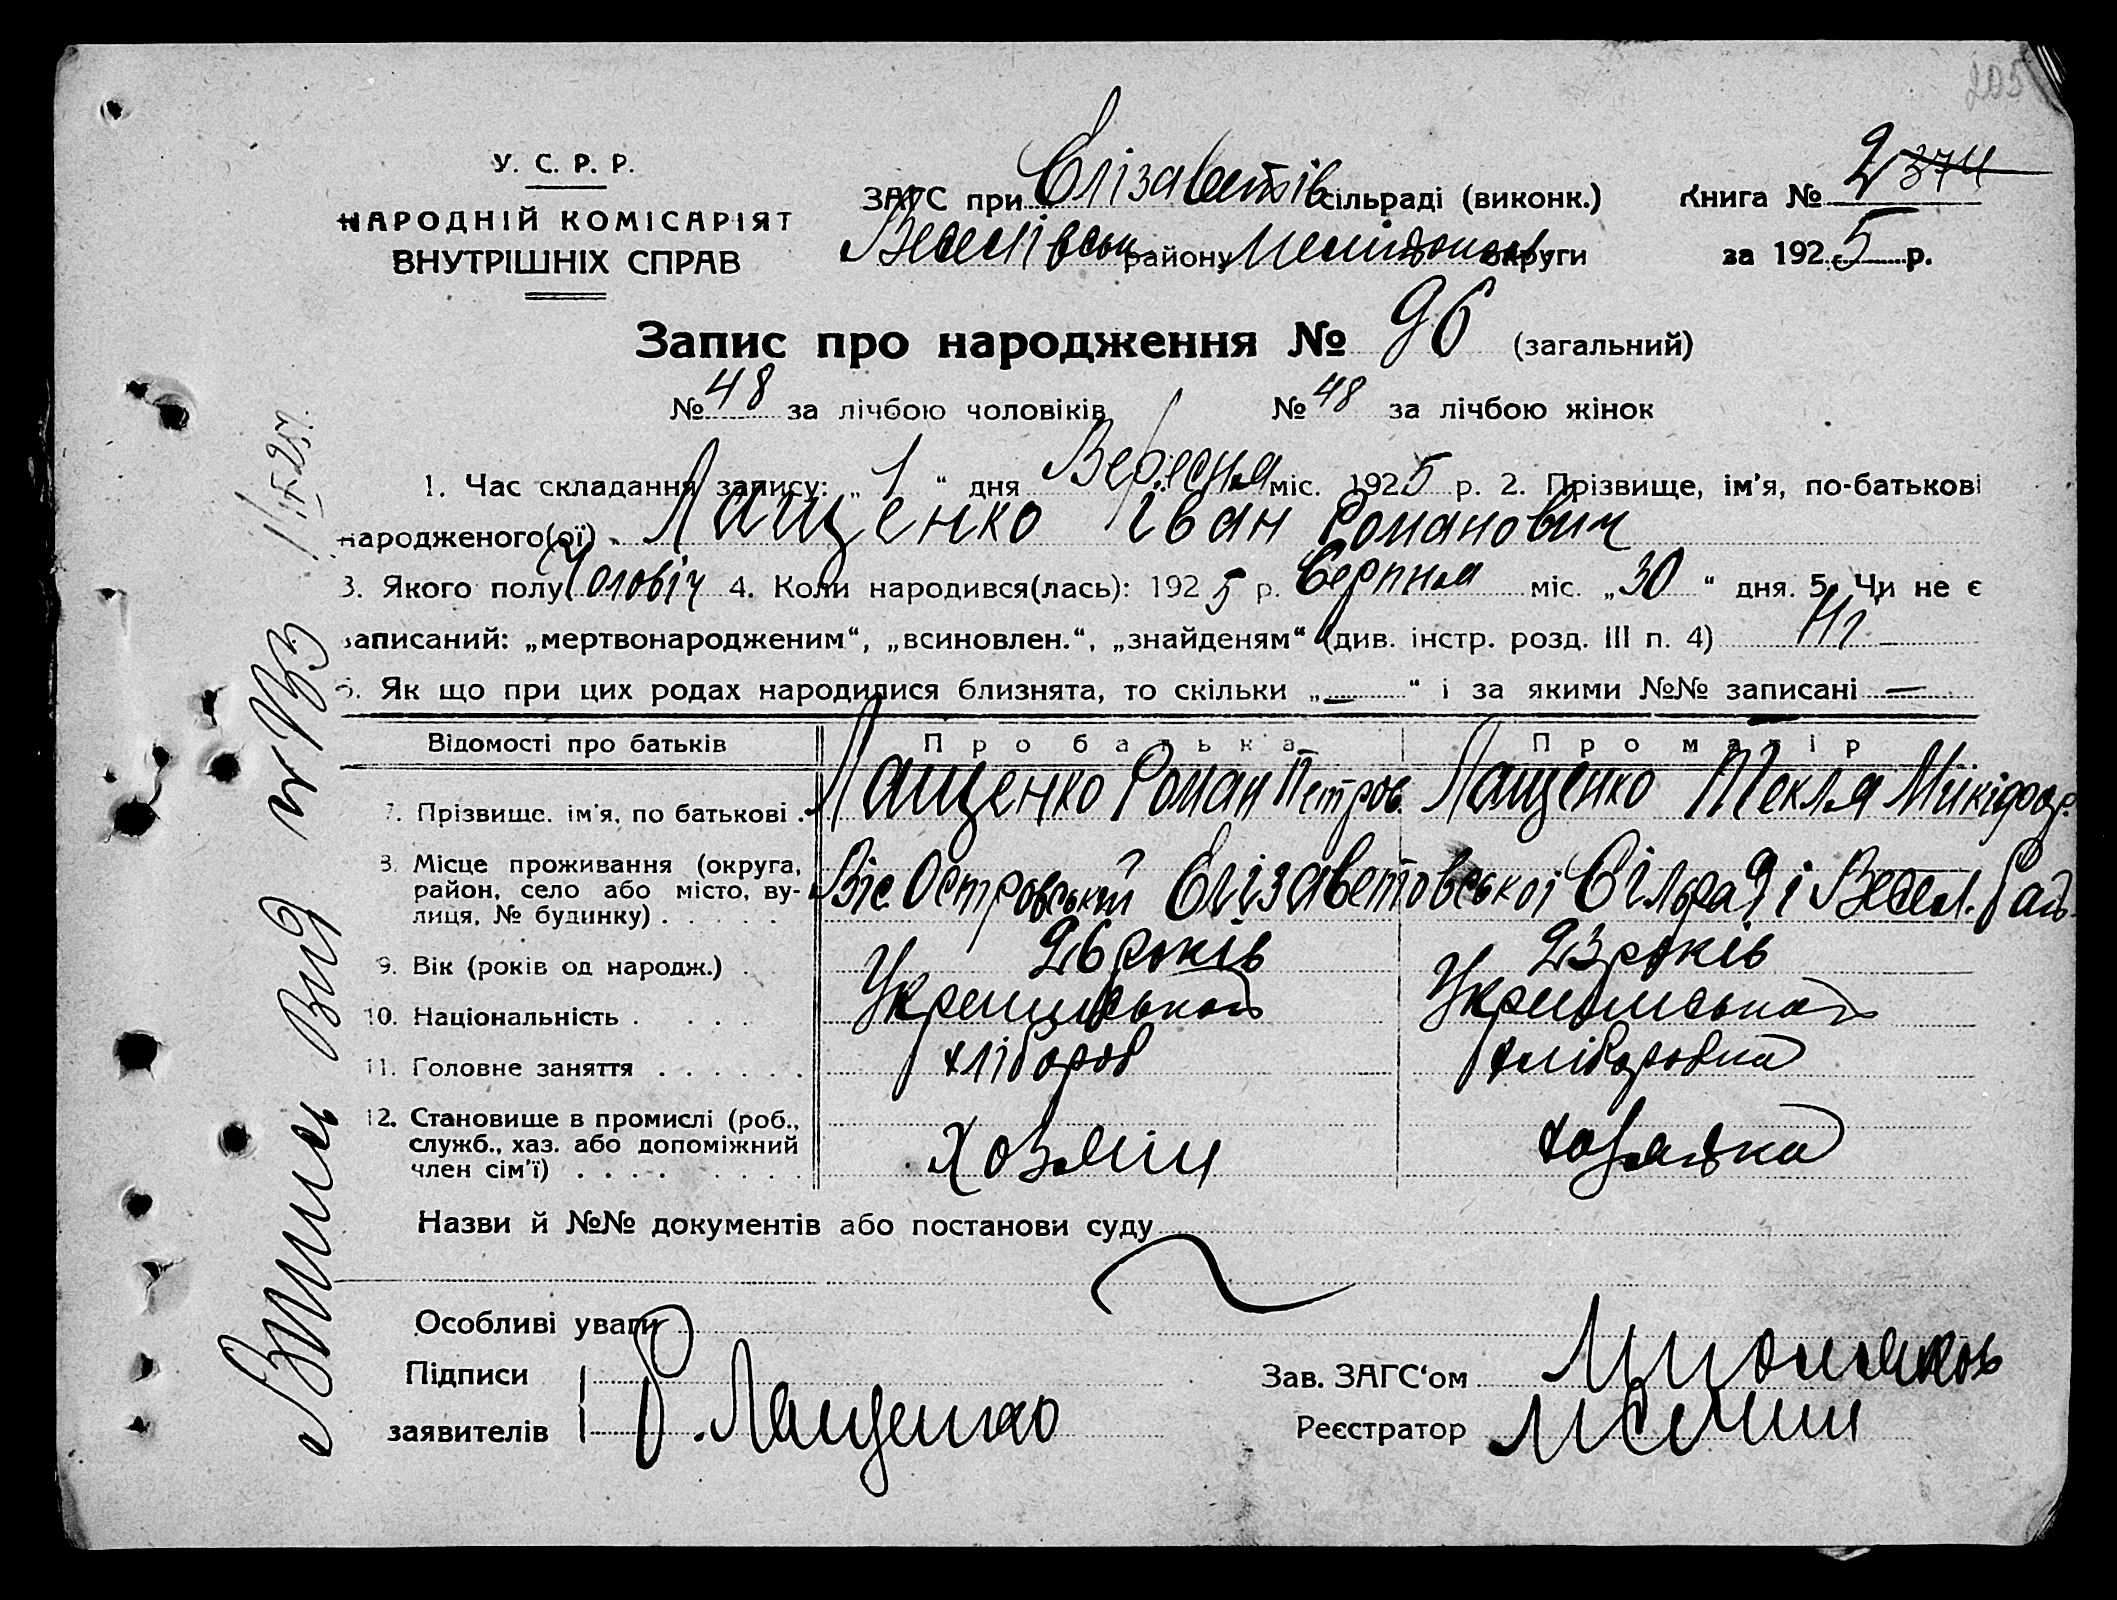 205
У. С. Р. Р.
НАРОДНІЙ КОМІСАРІЯТ
ВНУТРІШНІХ СПРАВ
ЗАГС при Єлізаветів сільраді (виконк.)
Веселівськ району Меліт округи
Книга № 2 374
за 1925 р.
Запис про народження № 96 (загальний)
№ 48 за лічбою чоловіків № 48 за лічбою жінок
1. Час складання запису: „1“ дня Вересня міс. 1925 р. 2. Прізвище, ім'я, по-батькові
народженого(ої) Лащенко Іван Романович
3. Якого полу Чоловіч 4. Коли народився(лась): 1925 р. Серпня міс. „30“ дня. 5. Чи не є
записаний: „мертвонародженим“, „всиновлен.“, „знайденям“ (див. інстр. розд. III п. 4) Ні
6. Як що при цих родах народилися близнята, то скільки „—“ і за якими №№ записані —
Відомості про батьків Про батька Про матір
7. Прізвище, ім'я, по батькові . Лащенко Роман Петров. Лащенко Текля Микіфор.
8. Місце проживання (округа, район, село або місто, вулиця, № будинку) . . . . . Островський Єлізаветовської Сільраді Весел. Рай
9. Вік (років од народж.) . 26 років 23 років
10. Національність . . . . Українська Українська
11. Головне заняття . . . . . . хлібороб хліборобка
12. Становище в промислі (роб., служб., хаз. або допоміжний член сім'ї) . . . . . . . . Хозяїн хозяйка
Назви й №№ документів або постанови суду
Особливі уваги
Підписи
заявителів Р. Лащенко
Зав. ЗАГС'ом
Реєстратор